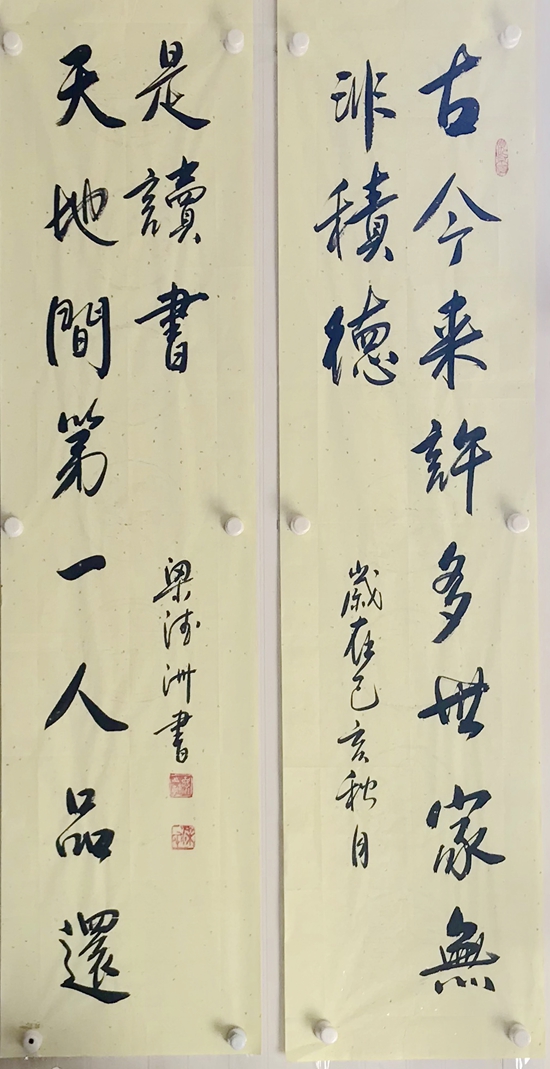 古今来許多世家無
非積德
歲在己亥秋月
天地間第一人品還
是讀書
梁洲書